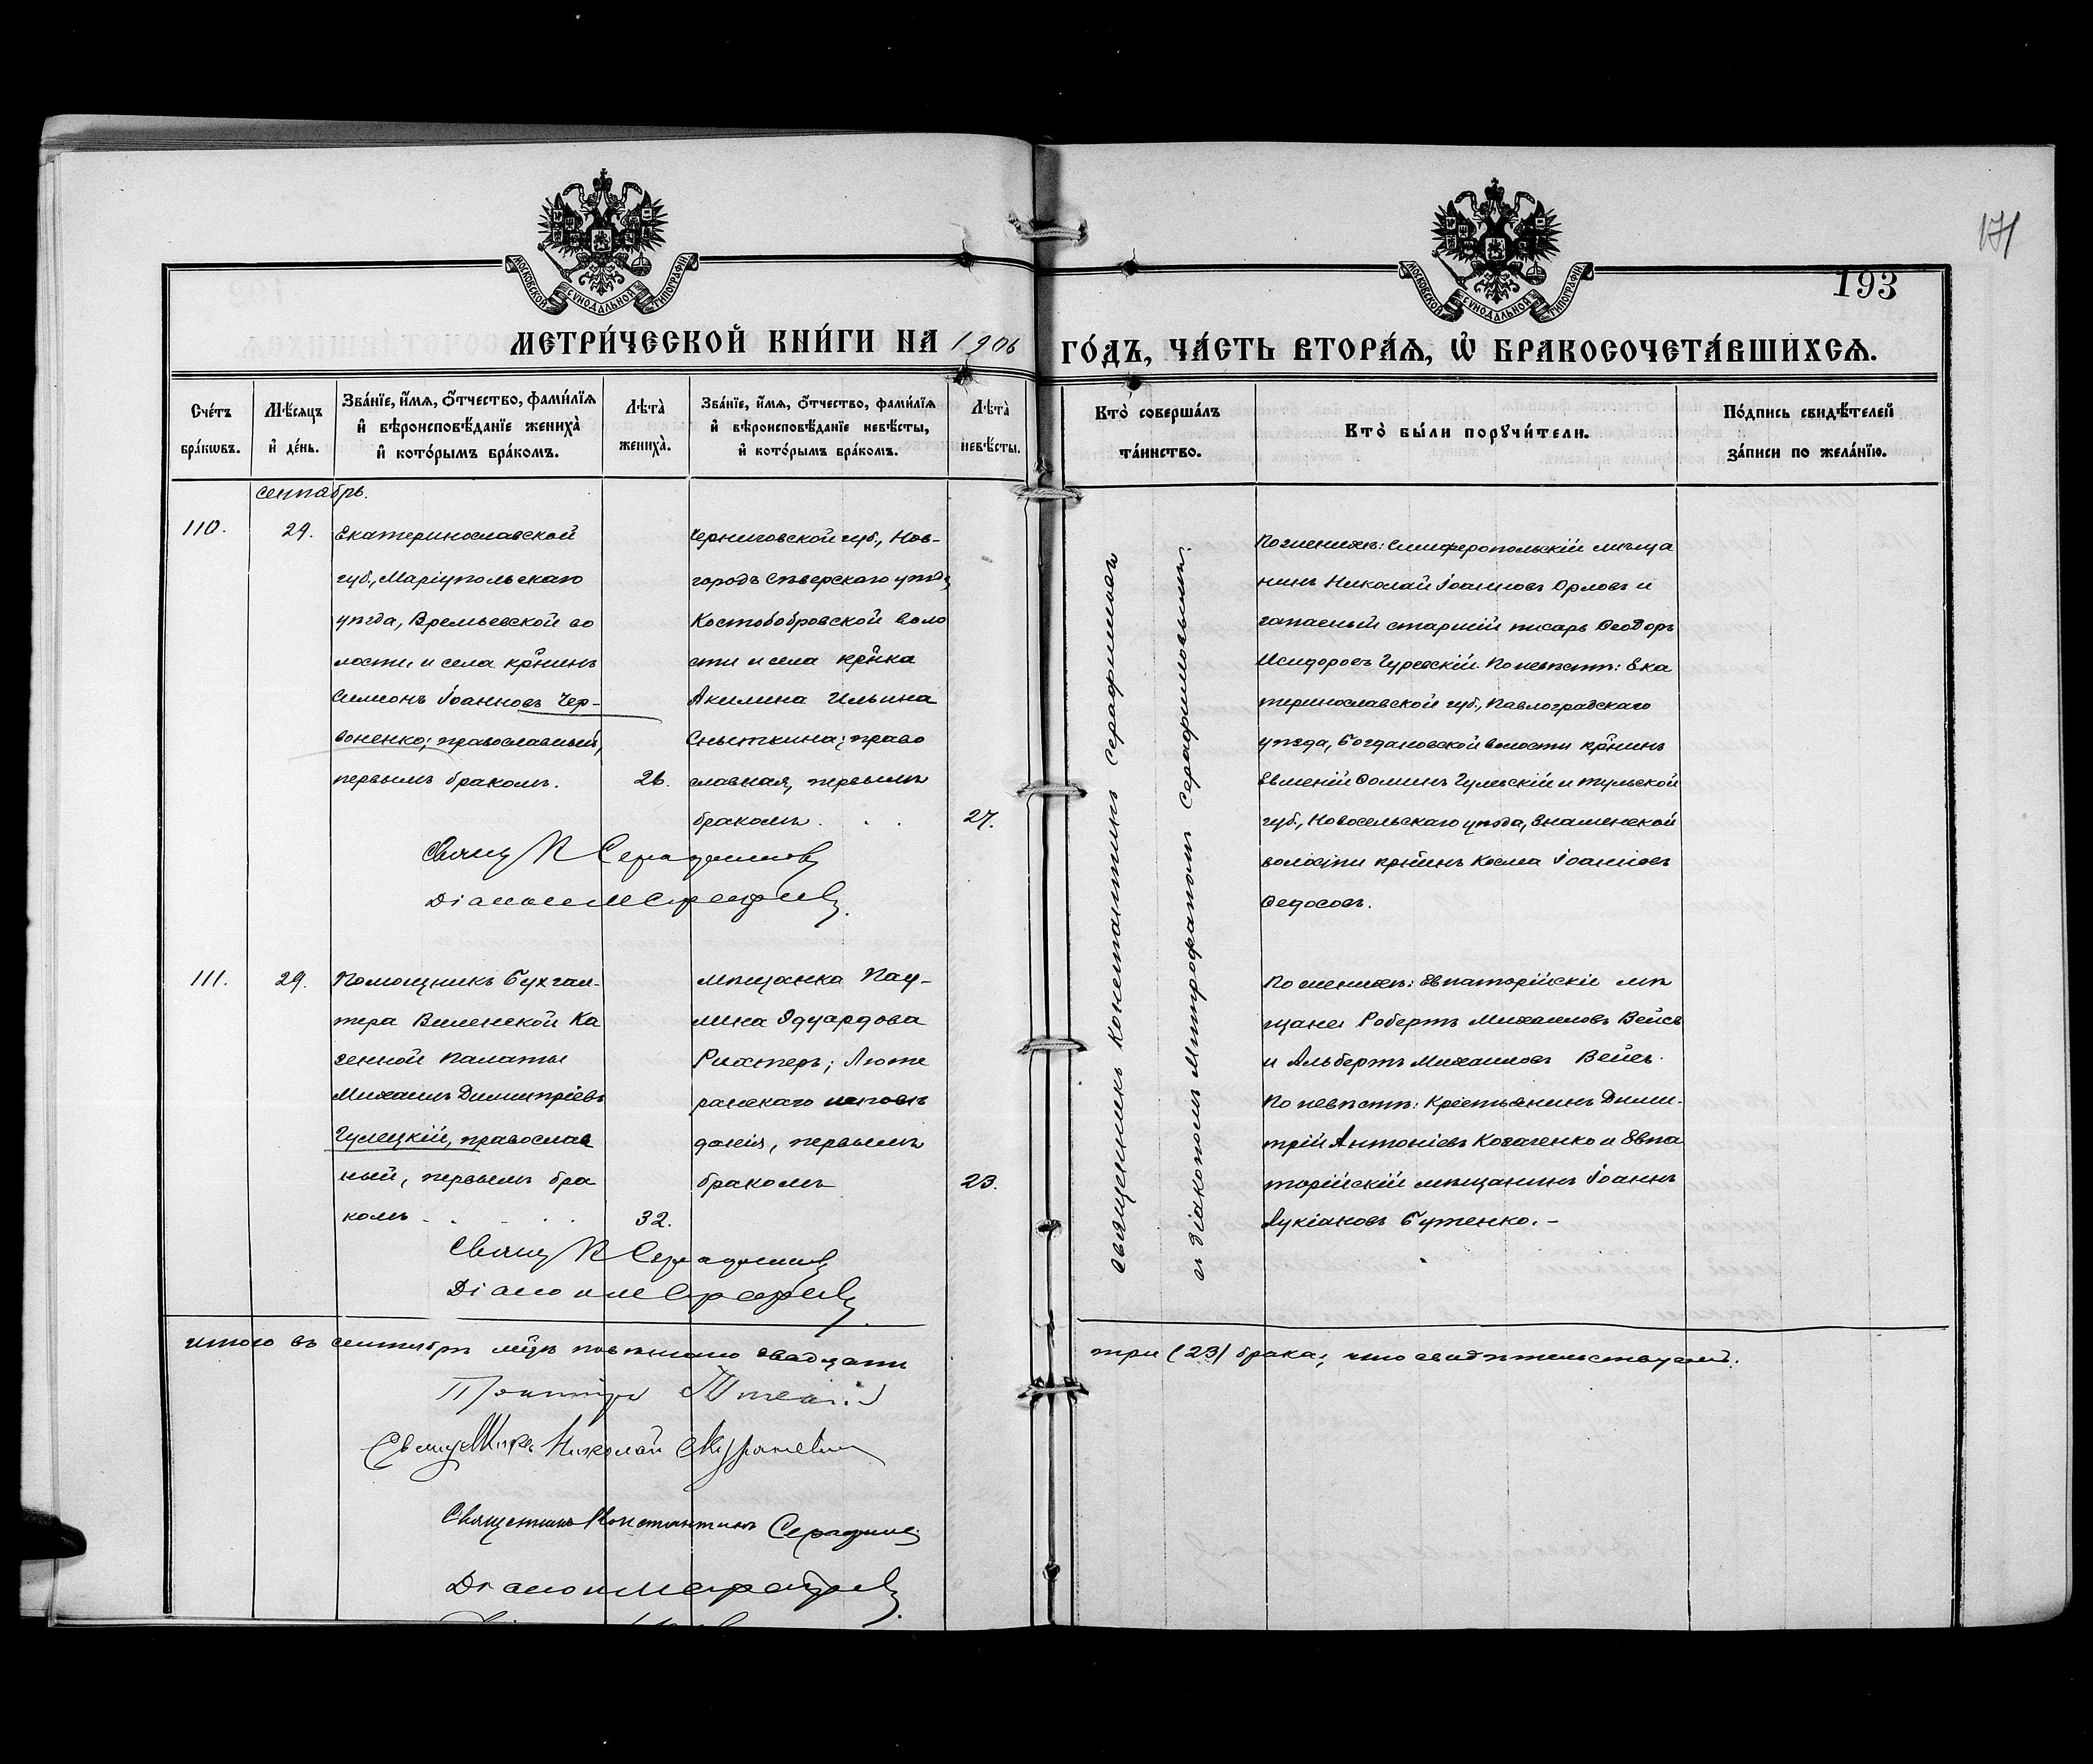 171
193
МОСКОВСКОЙ СѴНОДАЛЬНОЙ ТИПОГРАФІИ
МОСКОВСКОЙ СѴНОДАЛЬНОЙ ТИПОГРАФІИ
МЕТРИ́ЧЕСКОЙ КНИ́ГИ НА 1906 ГО́ДЪ, ЧА́СТЬ ВТОРА́Ѧ, Ѡ҆ БРАКОСОЧЕТА́ВШИХСѦ.
Сче́тъ бра́кѡвъ.
Мѣ́сяцъ и҆ де́нь.
Зва́нїе, и҆́мѧ, ѻ҆́тчество, фами́лїѧ и҆ вѣроисповѣ́данїе жениха̀ и҆ кото́рымъ бра́комъ.
Лѣ́та̀ жениха̀.
Зва́нїе, и҆́мѧ, ѻ҆́тчество, фами́лїѧ и҆ вѣроисповѣ́данїе невѣ́сты, и҆ кото́рымъ бра́комъ.
Лѣ́та̀ невѣ́сты.
Кто̀ соверша́лъ та́инство.
Кто̀ бы́ли порꙋчи́тели.
По́дпись свидѣ́телей за́писи по жела́нїю.
сентябрь.
110.
29.
Екатеринославской
губ., Маріупольскаго
уѣзда, Времьевской во
лости и села кр̃нинъ
Симіонъ Іоанновъ Чер-
воненко; православный,
первымъ бракомъ.
26.
Черниговской губ., Нов-
городъ Сѣверскаго уѣзда,
Костобобровской воло
сти и села кр̃нка
Акилина Ильина
Сныткина; право
славная, первымъ
бракомъ.
27.
Священникъ Константинъ Серафимовъ
съ діакономъ Митрофаномъ Серафимовымъ.
По женихѣ: Симферопольскій мѣща
нинъ Николай Іоанновъ Орловъ и
запасный старшій писарь Ѳеодоръ
Исидоровъ Гуревскій. По невѣстѣ: Ека
теринославской губ., Павлоградскаго
уѣзда, Богдановской волости кр̃нинъ
Евменій Ѳоминъ Гулевскій и Тульской
губ., Новосельскаго уѣзда, Знаменской
волости кр̃нинъ Косма Іоанновъ
Ѳедосовъ.
Свящ К Серафимовъ
Діаконъ М Серафимовъ.
111.
29.
Помощникъ Бухгал-
тера Виленской Ка
зенной Палаты
Михаилъ Димитріевъ
Гулецкій, православ
ный, первымъ бра
комъ
32.
мѣщанка Пау-
лина Эдуардова
Рихтеръ; Люте
ранскаго исповѣ
данія, первымъ
бракомъ
23.
По женихѣ: Евпаторійскіе мѣ
щане Робертъ Михаиловъ Вейсъ
и Альбертъ Михаиловъ Вейсъ.
По невѣстѣ: Крестьянинъ Дими-
трій Антоніевъ Козаченко и Евпа
торійскій мѣщанинъ Іоаннъ
Лукіановъ Бутенко.-
Свящ К Серафимовъ
Діаконъ М Серафимовъ
Итого въ сентябрѣ мѣц̃ѣ повѣнчано двадцать три (23) брака; что свидѣтельствуемъ:
Священникъ Николай
Священникъ Константинъ Серафимовъ
Діаконъ М Серафимовъ.